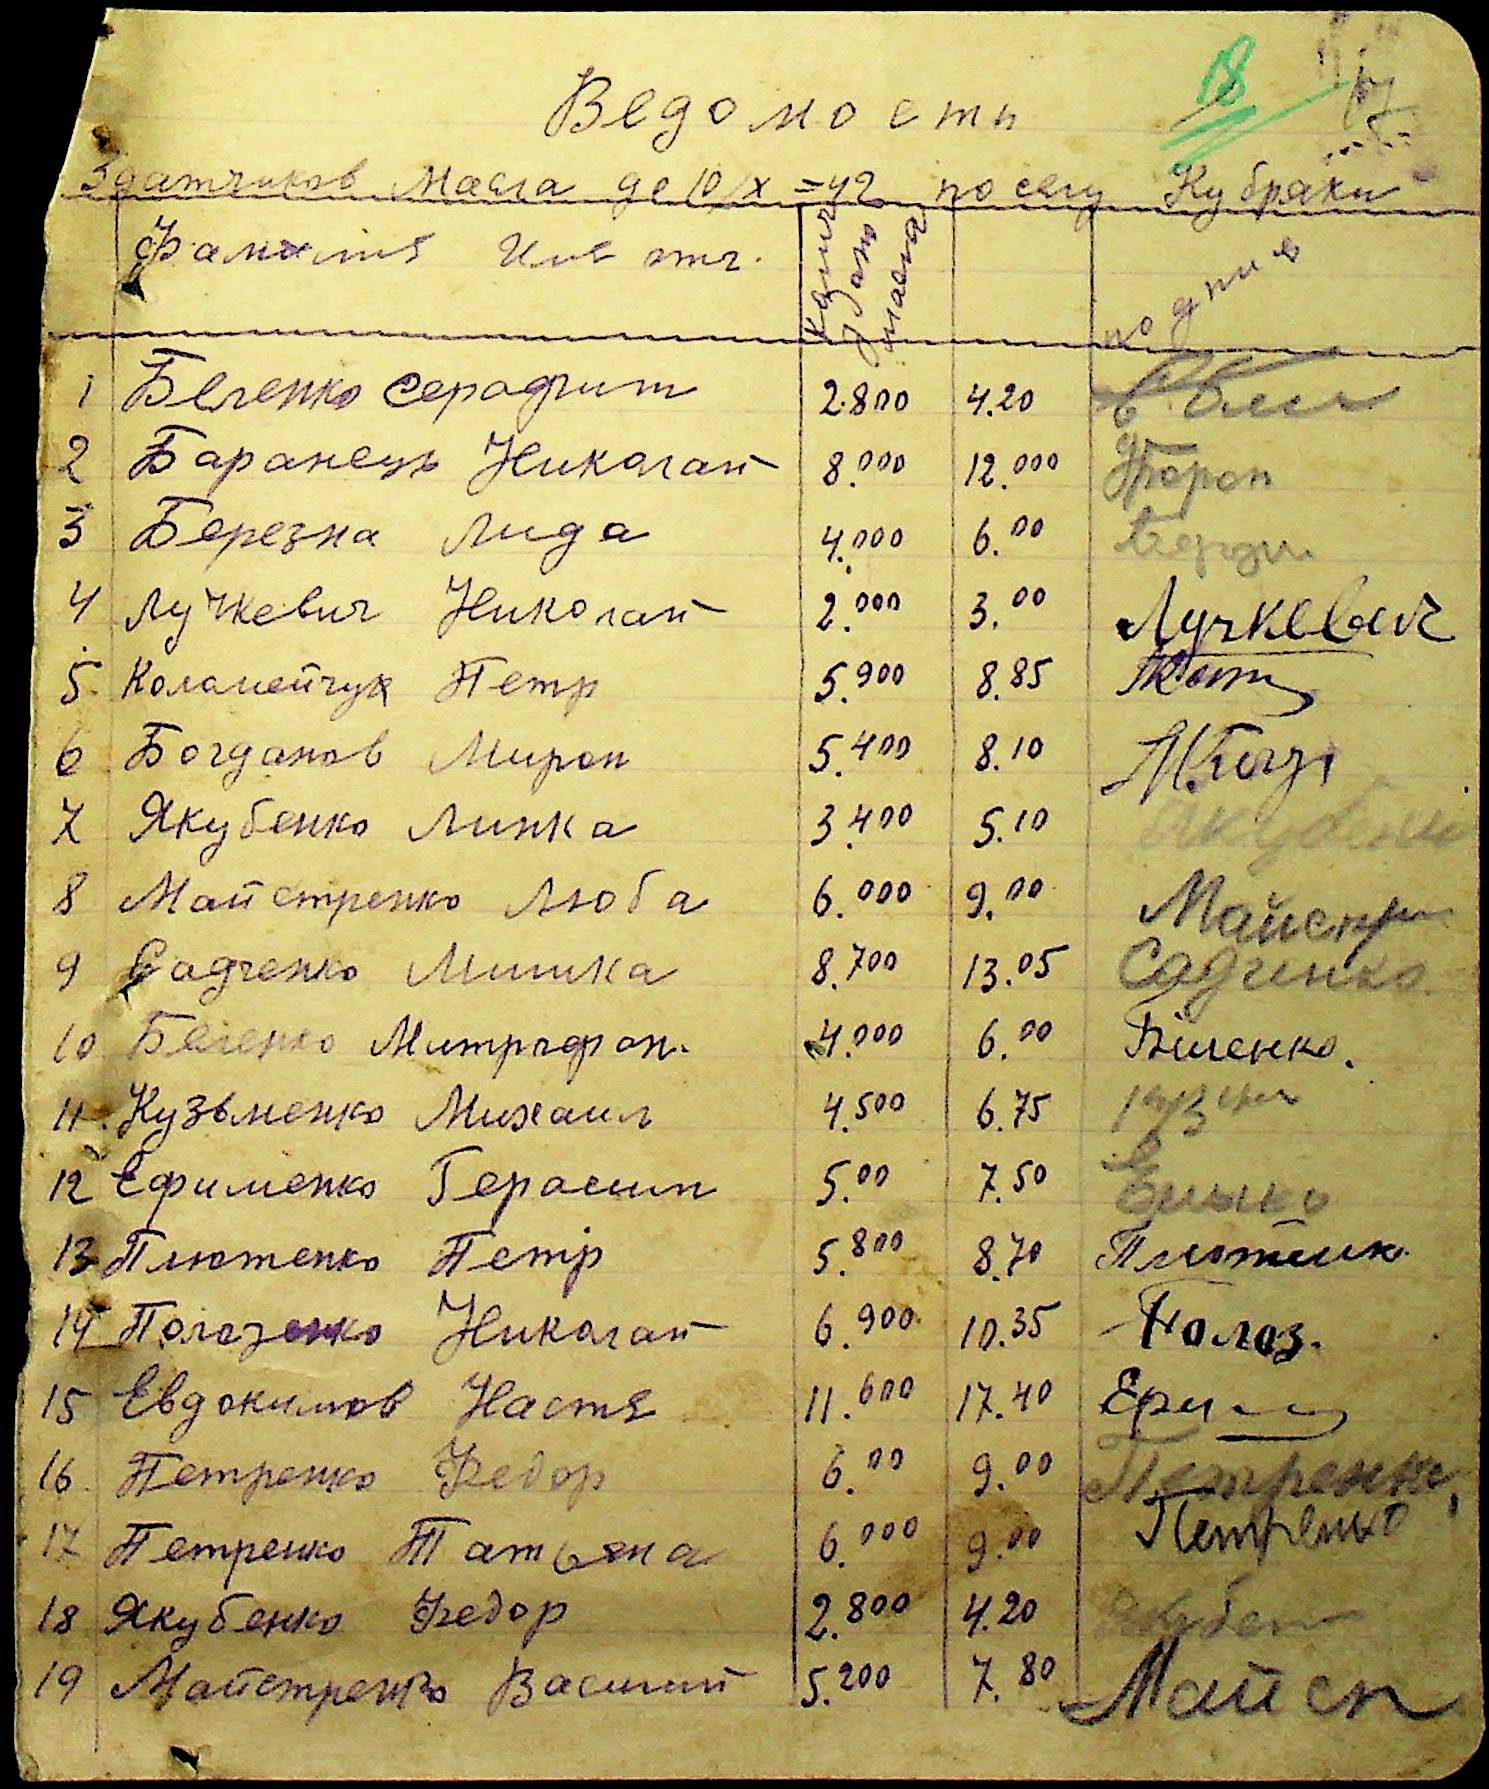 18
Ведомость
Здатчиков Масла до 10/X = 42 по селу Кубряки
Фамилия Имя отч. Колич здано масла подпись
1 Беленко Серафим 2.800 4.20
2 Баранець Николай 8.000 12.000
3 Березна Лида 4.000 6.00
4 Лучкевич Николай 2.000 3.00 Лучкевич
5. Коломейчук Петр 5.900 8.85
6 Богданов Мирон 5.400 8.10 М.Богд
7 Якубенко Линка 3.400 5.10 Якубенк
8 Майстренко Люба 6.000 9.00 Майстр
9 Садченко Мишка 8.700 13.05 Садченко
10 Беленко Митрофан. 4.000 6.00 Біленко.
11. Кузьменко Михаил 4.500 6.75
12 Ефименко Герасим 5.00 7.50
13 Плютенко Петр 5.800 8.70 Плютенк
14 Полозенко Николай 6.900 10.35 Полоз.
15 Евдокимов Настя 11.600 17.40
16. Петренко Федор 6.00 9.00 Петренко
17 Петренко Татьяна 6.000 9.00 Петренко
18 Якубенко Федор 2.800 4.20 Якубен
19 Майстренко Василий 5.200 7.80 Майст